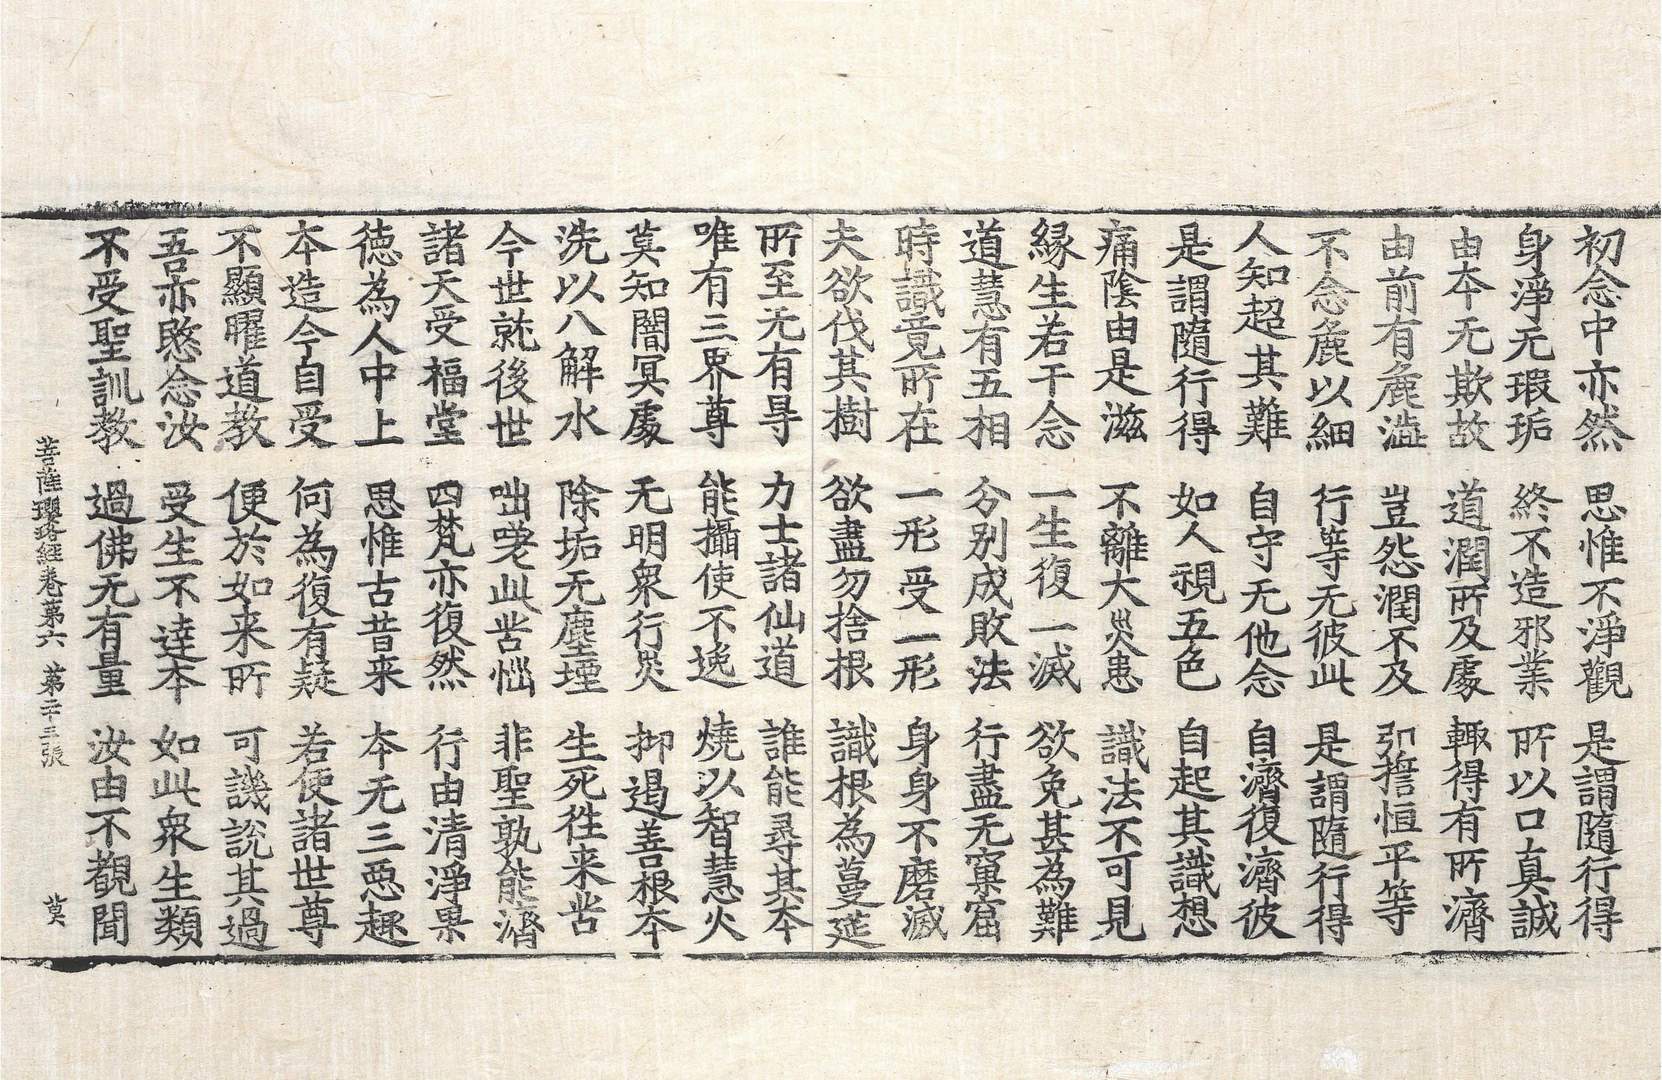 初念中亦然 思惟不淨觀 是謂隨行得
身淨无瑕垢 終不造邪業 所以口真誠
由本无欺故 道潤所及處 輙得有所濟
由前有麁澁 豈怨潤不及 引擔恒平等
不念麁以細 行等无彼此 是謂隨行得
人知超其難 自守无他念 自濟復濟彼
是謂隨行得 如人視五色 自起其識想
痛陰由是滋 不離大災患 識法不可見
緣生若干念 一生復一滅 欲免甚為難
道慧有五相 分別成敗法 行盡无窠窟
時識竟所在 一形受一形 身身不磨滅
夫欲伐其樹 欲盡勿捨根 識根為蔓莚
所至无有㝵 力士諸仙道 誰能尋其本
唯有三界尊 能攝使不逸 燒以智慧火
莫知闇冥處 无明衆行災 抑遏善根本
洗以八解水 除垢无塵堙 生死徃来苦
今世就後世 咄嗟此苦惱 非聖孰能濟
諸天受福堂 四梵亦復然 行由清淨果
德為人中上 思惟古昔来 本无三惡趣
本造今自受 何為復有疑 若使諸世尊
不顯曜道教 便於如来所 可譏說其過
吾亦愍念汝 受生不達本 如此衆生類
不受聖訓教 過佛无有量 汝由不觀聞
菩薩瓔珞經卷第六 第二十三張 莫